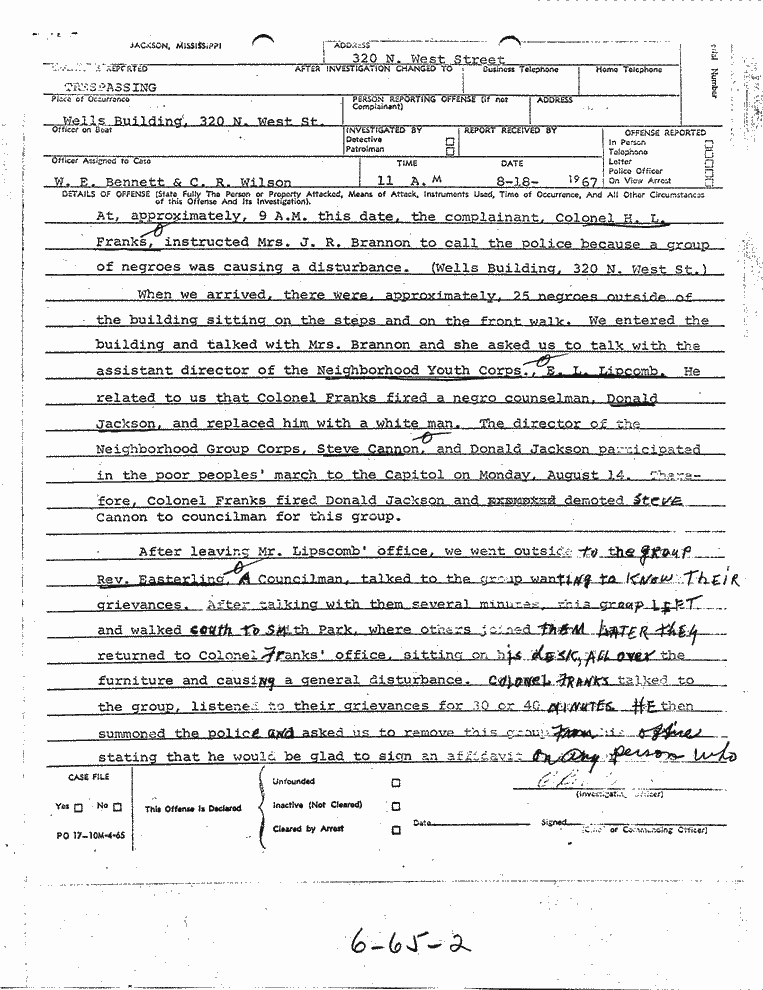 JACKSON, MISSISSIPPI
ADDRESS
320 N. West Street
REPORTED
AFTER INVESTIGATION CHANGED TO
Business Telephone
Home Telephone
Number
TRESPASSING
Place of Occurrence
PERSON REPORTING OFFENSE (if not Complainant)
ADDRESS
Wells Building, 320 N. West St.
Officer on Beat
INVESTIGATED BY
Detective
Patrolman
REPORT RECEIVED BY
OFFENSE REPORTED
In Person
Telephone
Letter
Police Officer
On View Arrest
Officer Assigned to Case
TIME
DATE
W. E. Bennett & C. R. Wilson
11 A. M
8-18- 1967
DETAILS OF OFFENSE (State Fully The Person or Property Attacked, Means of Attack, Instruments Used, Time of Occurrence, And All Other Circumstances
of this Offense And Its Investigation).
At, approximately, 9 A.M. this date, the complainant, Colonel H. L.
Franks, instructed Mrs. J. R. Brannon to call the police because a group
of negroes was causing a disturbance. (Wells Building, 320 N. West St.)
When we arrived, there were, approximately, 25 negroes outside of
the building sitting on the steps and on the front walk. We entered the
building and talked with Mrs. Brannon and she asked us to talk with the
assistant director of the Neighborhood Youth Corps., E. L. Lipcomb. He
related to us that Colonel Franks fired a negro counselman, Donald
Jackson, and replaced him with a white man. The director of the
Neighborhood Group Corps, Steve Cannon, and Donald Jackson participated
in the poor peoples' march to the Capitol on Monday, August 14. There-
fore, Colonel Franks fired Donald Jackson and demoted Steve
Cannon to councilman for this group.
After leaving Mr. Lipscomb' office, we went outside to the group
Rev. Easterling, A Councilman, talked to the group wanting to KNOW THEIR
grievances. After talking with them several minutes, this group LEFT
and walked south to Smith Park, where others joined THEM LATER THEY
returned to Colonel Franks' office, sitting on his DESK, ALL OVER the
furniture and causing a general disturbance. COLONEL FRANKS talked to
the group, listened to their grievances for 30 or 40 MINUTES HE then
summoned the police and asked us to remove this group From his office
stating that he would be glad to sign an affidavit on any person who
CASE FILE
Yes No
PO 17-10M-4-65
This Offense Is Declared
Unfounded
Inactive (Not Cleared)
Cleared by Arrest
(Investigating Officer)
Date
Signed
(Chief or Commanding Officer)
6-65-2